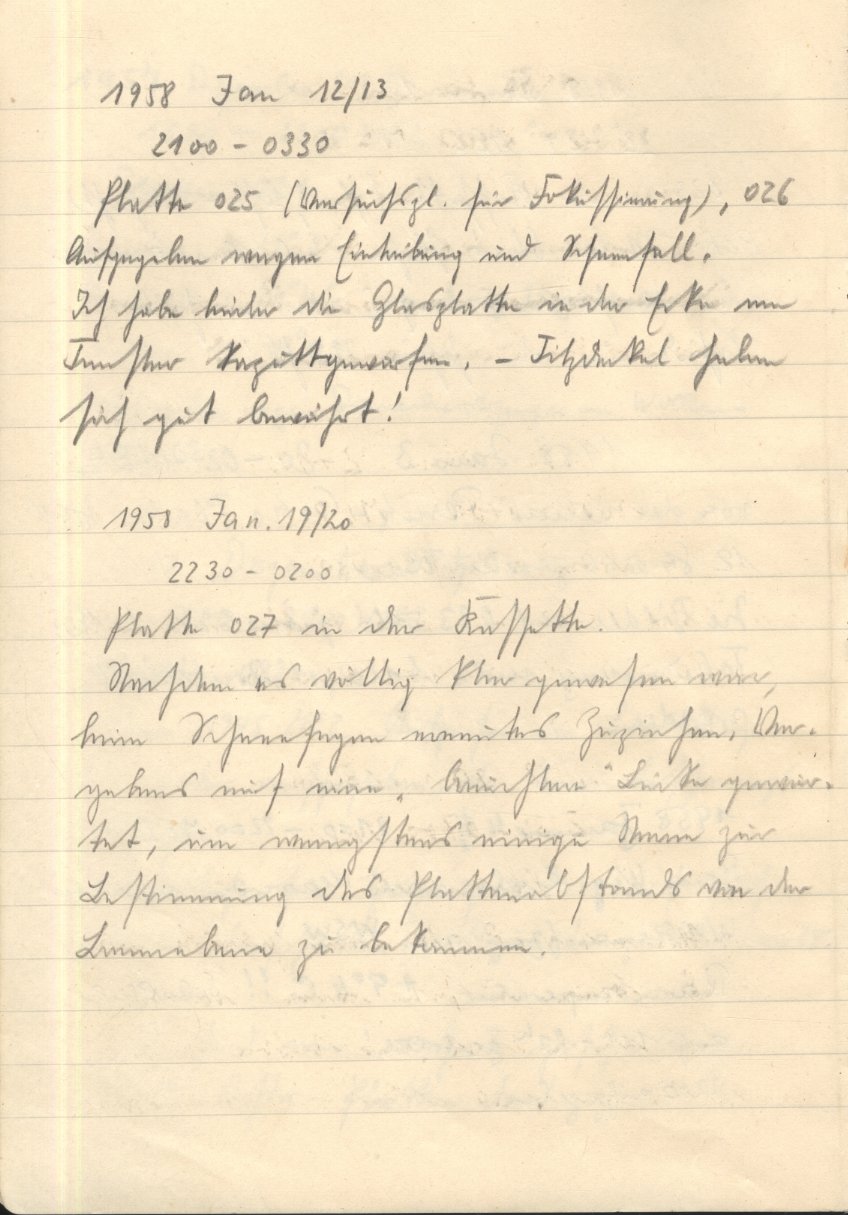 1958 Jan 12/13
2100 - 0330
Platte 025 (Versuchspl. für Fokussierung), 026
Aufgegeben wegen Eintrübung und Schneefall.
Ich habe leider die Glasplatte in der Ecke am
Fenster kaputtgeworfen. - Filzdeckel haben
sich gut bewährt!
1958 Jan. 19/20
2230 - 0200
Platte 027 in der Kassette.
Nachdem es völlig klar gewesen war,
beim Schneefegen erneutes Zuziehen. Ver-
gebens auf eine „ " Lücke gewar-
tet, um wenigstens einige Sterne zur
Bestimmung des Plattenabstands von der
zu bekommen.